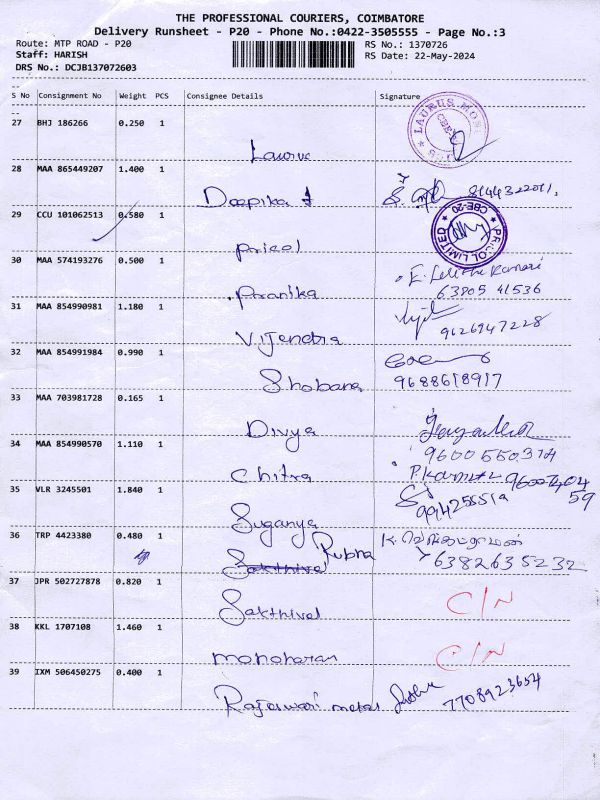 THE PROFESSIONAL COURIERS, COIMBATORE
Delivery Runsheet - P20 - Phone No.:0422-3505555 - Page No.:3
Route: MTP ROAD - P20 RS No.: 1370726
Staff: HARISH RS Date: 22-May-2024
DRS No.: DCJB137072603
S No Consignment No Weight PCS Consignee Details Signature
27 BHJ 186266 0.250 1
LAURUS
28 MAA 865449207 1.400 1
Deepika
29 CCU 101062513 0.580 1
CBE-20
PRICOL LIMITED
pricol
30 MAA 574193276 0.500 1
Pranika 63805 41536
31 MAA 854990981 1.180 1
Vijendra 9626947228
32 MAA 854991984 0.990 1
Shobana 9688618917
33 MAA 703981728 0.165 1
Divya
34 MAA 854990570 1.110 1
9600550314
Chitra
35 VLR 3245501 1.840 1
Suganya
36 TRP 4423380 0.480 1
Sakthivel Rubha 6382635232
37 JPR 502727878 0.820 1
Sakthivel C/N
38 KKL 1707108 1.460 1
manoharan C/N
39 IXM 506450275 0.400 1
Rajeswari metal 7708923654